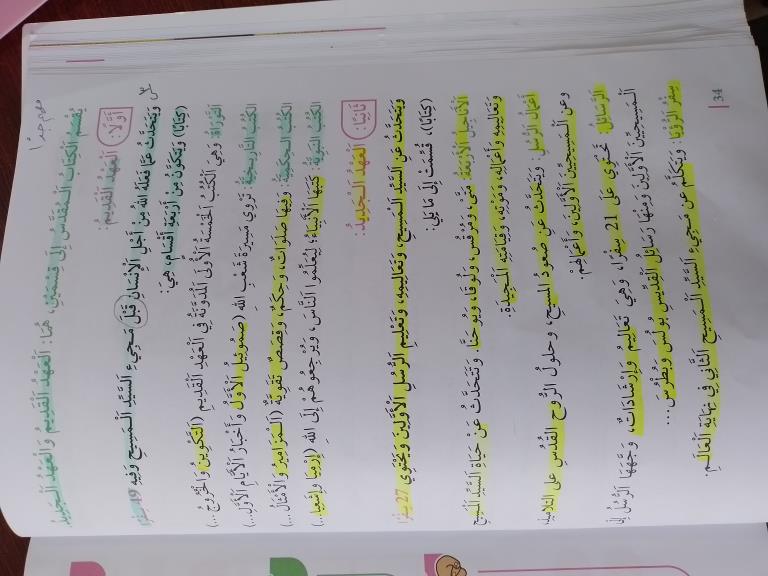 مهم جدا
يُقْسَمُ الْكِتَابُ الْمُقَدَّسُ إِلَى قِسْمَيْنِ، هُمَا: الْعَهْدُ الْقَدِيمُ وَالْعَهْدُ الْجَدِيدُ
أَوَّلًا: الْعَهْدُ الْقَدِيمُ:
وَيَتَحَدَّثُ عَمَّا فَعَلَهُ اللهُ مِنْ أَجْلِ الْإِنْسَانِ قَبْلَ مَجِيءِ السَّيِّدِ الْمَسِيحِ وَفِيهِ 49 سِفْرًا
(كِتَابًا) وَيَتَكَوَّنُ مِنْ أَرْبَعَةِ أَقْسَامٍ، هِيَ:
التَّوْرَاةُ: وَهِيَ الْكُتُبُ الْخَمْسَةُ الْأُولَى الْمُدَوَّنَةُ فِي الْعَهْدِ الْقَدِيمِ (التَّكْوِينُ وَالْخُرُوجُ ...)
الْكُتُبُ التَّارِيخِيَّةُ: تَرْوِي مَسِيرَةَ شَعْبِ اللهِ (صَمُوئِيلَ الْأَوَّلُ وَأَخْبَارُ الْأَيَّامِ الْأَوَّلِ...)
الْكُتُبُ الْحِكَمِيَّةُ: وَفِيهَا صَلَوَاتٌ، وَحِكَمٌ، وَقِصَصٌ تَقَوِيَّةٌ (الْمَزَامِيرُ وَالْأَمْثَالُ ...)
الْكُتُبُ النَّبَوِيَّةُ: كَتَبَهَا الْأَنْبِيَاءُ؛ لِيُعَلِّمُوا النَّاسَ، وَيُرْجِعُوهُمْ إِلَى اللهِ (إِرْمِيَا وَإِشَعْيَا...)
ثَانِيًا: الْعَهْدُ الْجَدِيدُ:
وَيَتَحَدَّثُ عَنِ السَّيِّدِ الْمَسِيحِ، وَتَعَالِيمِهِ، وَتَعْلِيمِ الرُّسُلِ الْأَوَّلِينَ وَيَحْتَوِي 27 سِفْرًا
(كِتَابًا)، قُسِّمَتْ إِلَى مَا يَلِي:
الْأَنَاجِيلُ الْأَرْبَعَةُ: مَتَّى، وَمَرْقُسُ، وَلُوقَا، وَيُوحَنَّا. وَتَتَحَدَّثُ عَنْ حَيَاةِ السَّيِّدِ الْمَسِيحِ
وَتَعَالِيمِهِ وَأَعْمَالِهِ، وَمَوْتِهِ، وَقِيَامَتِهِ الْمَجِيدَةِ.
أَعْمَالُ الرُّسُلِ: وَيَتَحَدَّثُ عَنْ صُعُودِ الْمَسِيحِ، وَحُلُولِ الرُّوحِ الْقُدُسِ عَلَى التَّلَامِيذِ،
وَعَنِ الْمَسِيحِيِّينَ الْأَوَّلِينَ، وَأَعْمَالِهِمْ.
الرَّسَائِلُ: تَحْتَوِي عَلَى 21 سِفْرًا، وَهِيَ تَعَالِيمُ وَإِرْشَادَاتٌ، وَجَّهَهَا الرُّسُلُ إِلَى
الْمَسِيحِيِّينَ الْأَوَّلِينَ وَمِنْهَا رَسَائِلُ الْقِدِّيسِ بُولُسَ وَبُطْرُسَ...
سِفْرُ الرُّؤْيَا: وَيَتَكَلَّمُ عَنْ مَجِيءِ السَّيِّدِ الْمَسِيحِ الثَّانِي فِي نِهَايَةِ الْعَالَمِ.
34